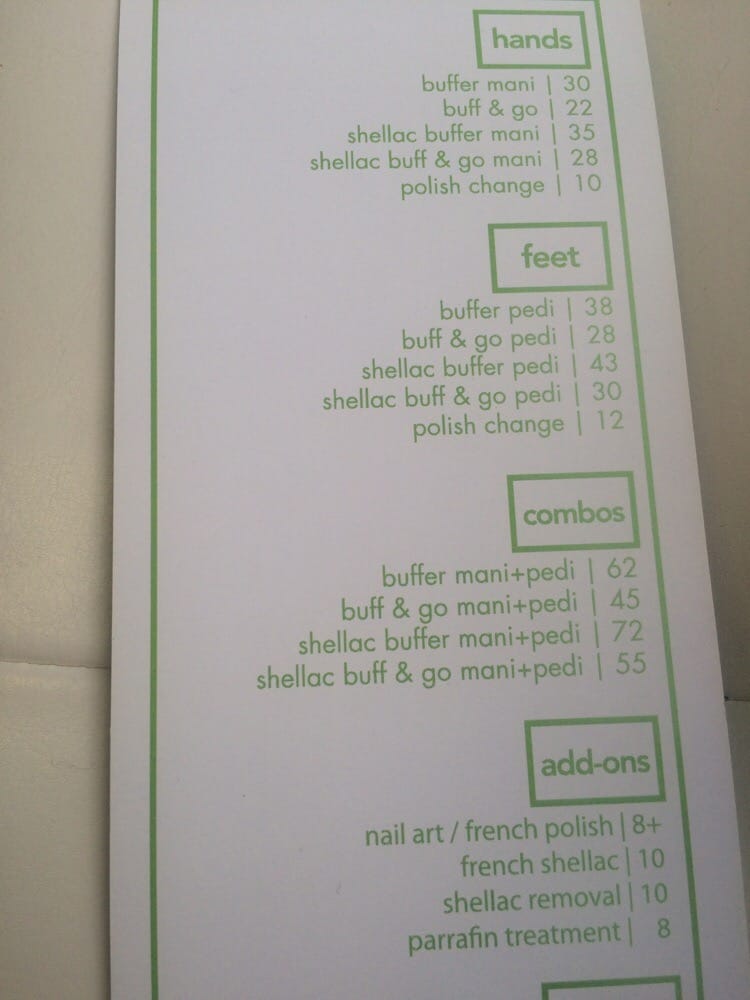 hands
buffer mani | 30
buff & go | 22
shellac buffer mani | 35
shellac buff & go mani | 28
polish change | 10
feet
buffer pedi | 38
buff & go pedi | 28
shellac buffer pedi | 43
shellac buff & go pedi | 30
polish change | 12
combos
buffer mani+pedi | 62
buff & go mani+pedi | 45
shellac buffer mani+pedi | 72
shellac buff & go mani+pedi | 55
add-ons
nail art / french polish | 8+
french shellac | 10
shellac removal | 10
parrafin treatment | 8